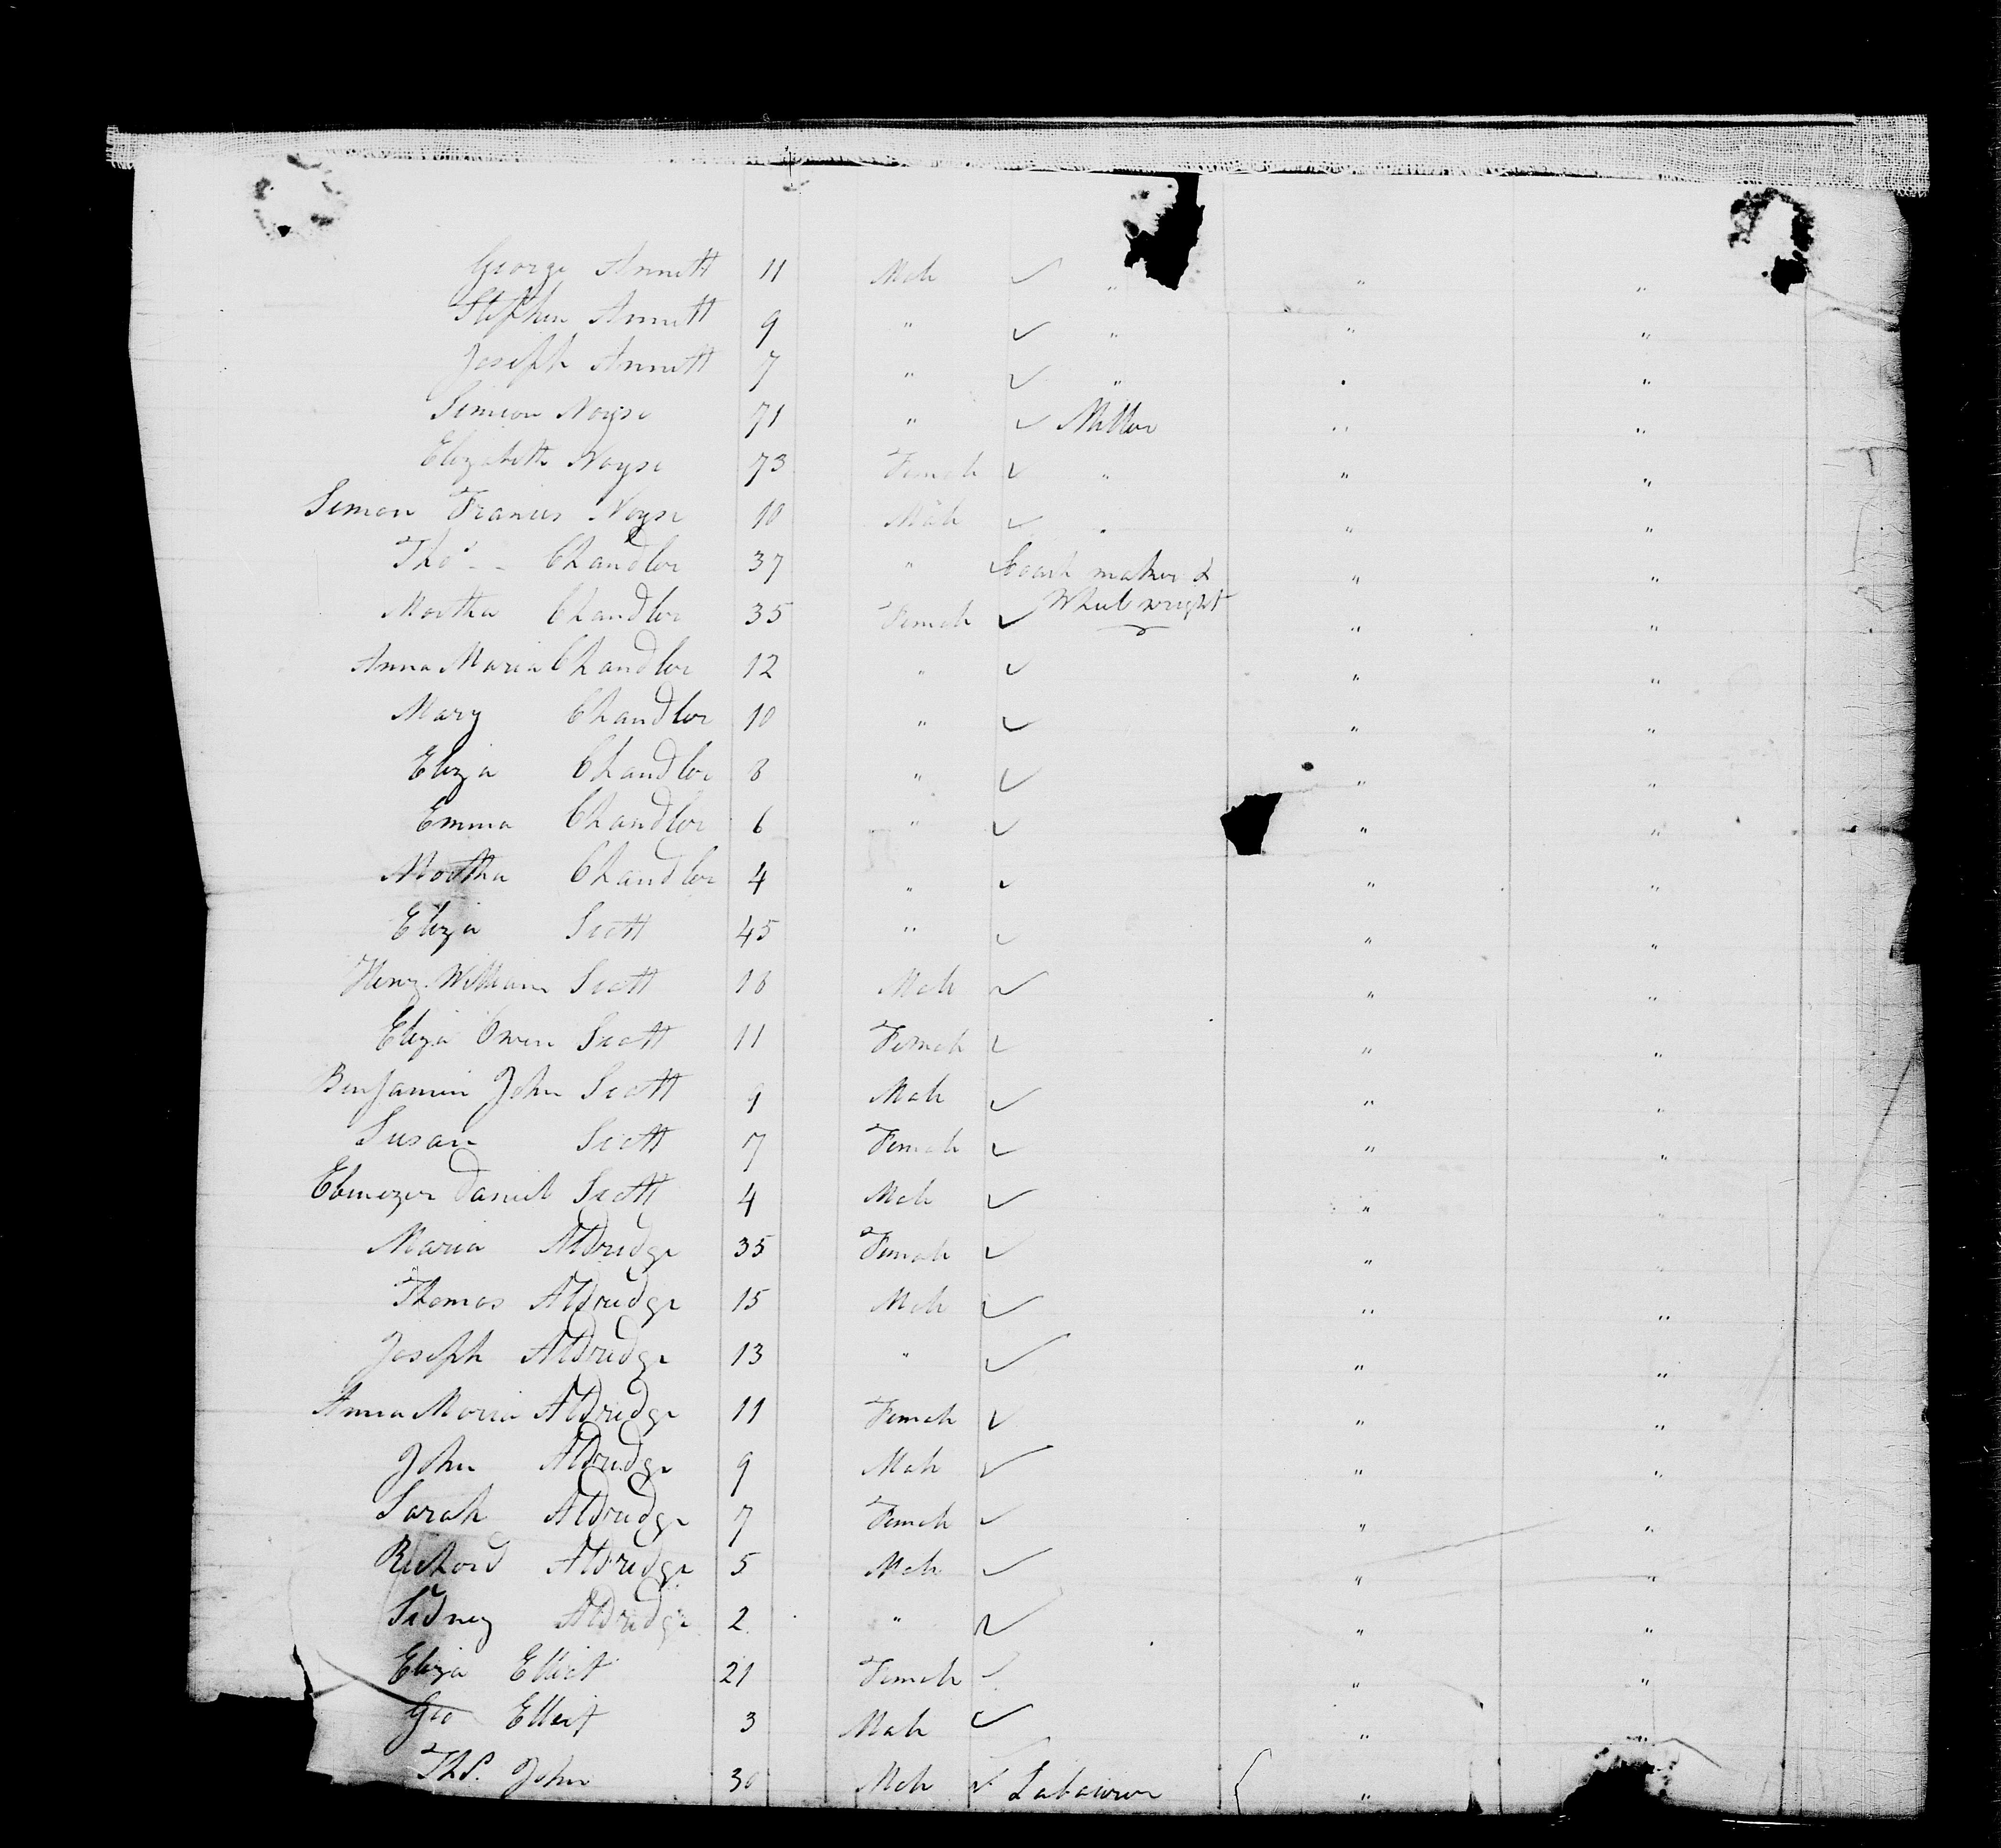 George Annett 11 Male ✓ " " "
Stephen Annett 9 " ✓ " " "
Joseph Annett 7 " ✓ " " "
Simeon Noyse 71 " ✓ Miller " "
Elizabeth Noyse 73 Female ✓ " " "
Simon Francis Noyse 10 Male ✓ " " "
Thos -- Chandler 37 " ✓ Coach maker & " "
Wheelwright
Martha Chandler 35 Female ✓ " "
Anna Maria Chandler 12 " ✓ " "
Mary Chandler 10 " ✓ " "
Eliza Chandler 8 " ✓ " "
Emma Chandler 6 " ✓ " "
Martha Chandler 4 " ✓ " "
Eliza Scott 45 " ✓ " "
Henry William Scott Male ✓ " "
Eliza Owen Scott 11 Female ✓ " "
Benjamin John Scott 9 Male ✓ " "
Susan Scott 7 Female ✓ " "
Ebenezer Daniel Scott 4 Male ✓ " "
Maria Aldridge 35 Female ✓ " "
Thomas Aldridge 15 Male ✓ " "
Joseph Aldridge 13 " ✓ " "
Anna Maria Aldridge 11 Female ✓ " "
John Aldridge 9 Male ✓ " "
Sarah Aldridge 7 Female ✓ " "
Richard Aldridge 5 Male ✓ " "
Sidney Aldridge 2 " ✓ " "
Eliza Elliot 21 Female ✓ " "
Geo Elliot 3 Male ✓ " "
Ths. John 30 Male ✓ Labourer "